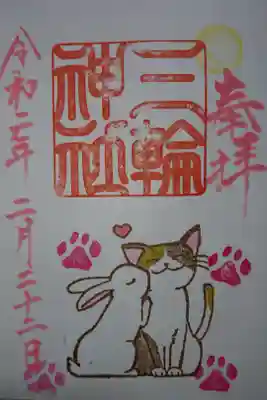 奉拝
三輪
神社
令和七年 二月二十二日